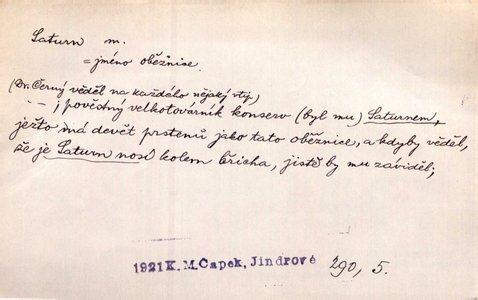 Saturn m.
= jméno oběžnice.
(Dr. Černý věděl na každého nějaký vtip)
– – ; pověstný velkotovárník konserv (byl mu) Saturnem,
ježto má devět prstenů jako tato oběžnice, a kdyby věděl,
že je Saturn nosí kolem břicha, jistě by mu záviděl;
1921 K. M. Čapek, Jindrové 290, 5.